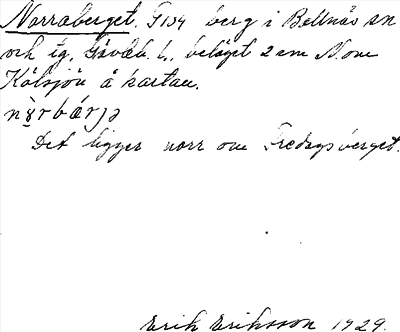 Norraberget. F134 berg i Bollnäs sn
och tg, Gävleb. l., beläget 2 cm N om
Kölsjön å kartan.
Det ligger norr om Fredagsberget.
Erik Eriksson 1929.